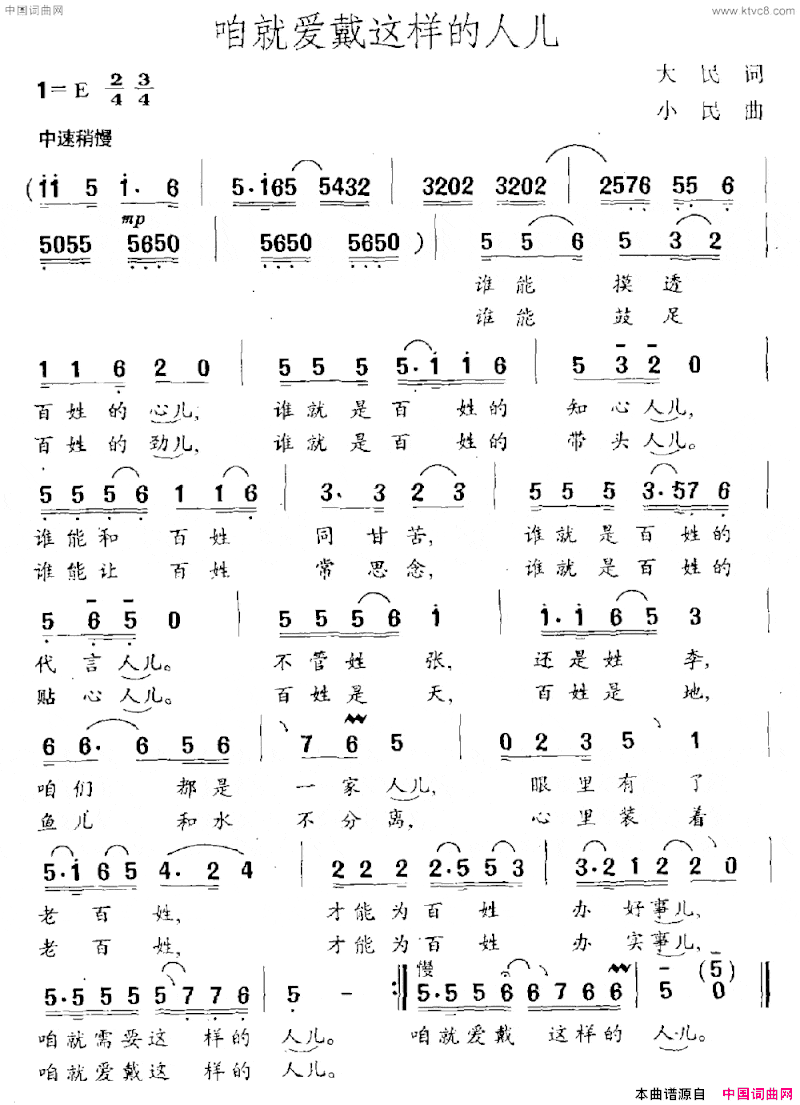 中国词曲网
www.ktvc8.com
咱就爱戴这样的人儿
1=E 2/4 3/4
大民词
小民曲
中速稍慢
(i i 5 i· 6 | 5·i65 5432 | 3202 3202 | 2576 55 6 |
mp
5055 5650 | 5650 5650 ) | 5 5 6 5 3 2 |
谁能 摸透
谁能 鼓足
1 1 6 2 0 | 5 5 5 5·i i 6 | 5 3 2 0 |
百姓的心儿, 谁就是百姓的 知心人儿,
百姓的劲儿, 谁就是百姓的 带头人儿。
5 5 5 6 1 1 6 | 3· 3 2 3 | 5 5 5 3·57 6 |
谁能和 百姓 同甘苦, 谁就是百姓的
谁能让 百姓 常思念, 谁就是百姓的
5 6 5 0 | 5 5 5 6 i | i·i 6 5 3 |
代言人儿。 不管姓张, 还是姓李,
贴心人儿。 百姓是天, 百姓是地,
6 6· 6 5 6 | 7 6 5 | 0 2 3 5 1 |
咱们 都是 一家人儿, 眼里有了
鱼儿 和水 不分离, 心里装着
5·i 6 5 4· 2 4 | 2 2 2 2·5 5 3 | 3·2 1 2 2 0 |
老百姓, 才能为百姓 办好事儿,
老百姓, 才能为百姓 办实事儿,
慢
5·5 5 5 5 7 7 6 | 5 - :‖ 5·5 5 6 6 7 6 6 | 5 (5) 0 ‖
咱就需要这样的 人儿。 咱就爱戴 这样的 人儿。
咱就爱戴这样的 人儿。
本曲谱源自 中国词曲网